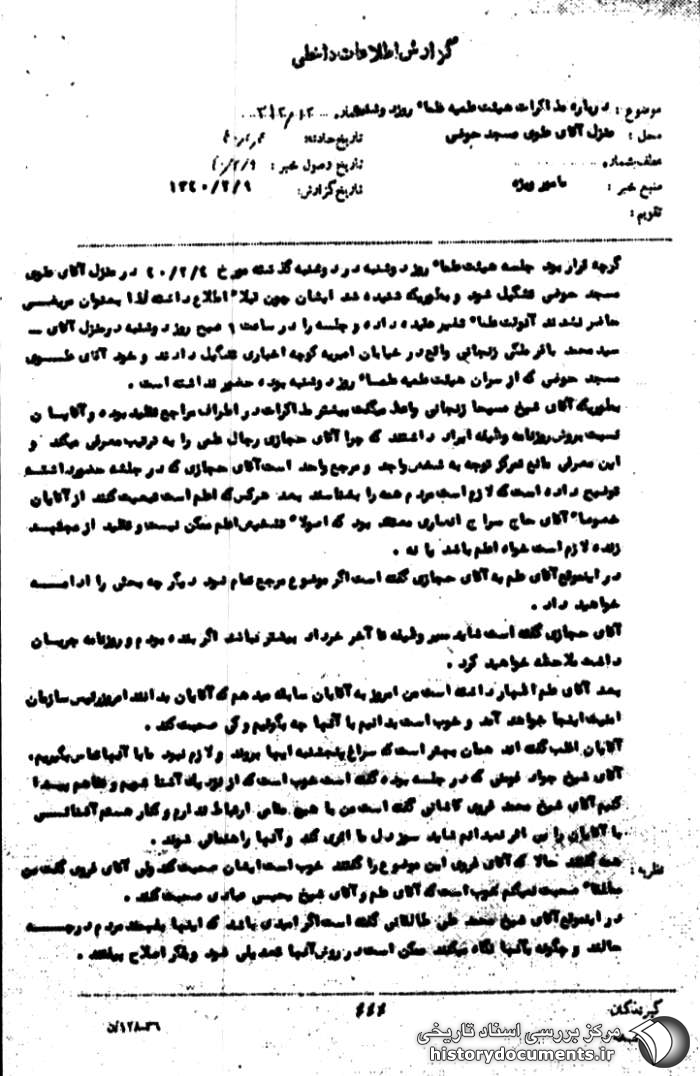 گزارش اطلاعات داخلی
موضوع : درباره مذاکرات هیئت علمیه علماء روز دوشنبه
محل : منزل آقای علوی مسجد حوضی
تاریخ حادثه:
عطف بشماره
تاریخ وصول خبر : ۴۰/۲/۹
منبع خبر : مامور ویژه
تاریخ گزارش: ۱۳۴۰/۲/۹
تقویم :
گرچه قرار بود جلسه هیئت علماء روز دوشنبه در دوشنبه گذشته مورخ ۴۰/۲/۴ در منزل آقای علوی
مسجد حوضی تشکیل شود و بطوریکه شنیده شد ایشان چون قبلا اطلاع داشته لذا بعنوان مریضی
حاضر نشدند آنوقت علماء تغییر عقیده داده و جلسه را در ساعت ۹ صبح روز دوشنبه در منزل آقای –
سید محمد باقر زنجانی واقع در خیابان امیریه کوچه اخباری تشکیل دادند و خود آقای علوی
مسجد حوضی که از سران هیئت علمیه علماء روز دوشنبه بوده حضور نداشته است .
بطوریکه آقای شیخ مسیحا زنجانی واعظ میگفت بیشتر مذاکرات در اطراف مراجع تقلید بوده و آقایان
نسبت بروش روزنامه وظیفه ایراد داشتند که چرا آقای حجازی رجال علمی را به ترتیب معرفی میکند و
این معرفی مانع تمرکز توجه به شخص واحد و مرجع واحد است آقای حجازی که در جلسه حضور داشته
توضیح داده است که لازم است مردم همه را بشناسند بعد هرکس که اعلم است تبعیت کنند از آقایان
خصوصا آقای حاج سراج انصاری معتقد بود که اصولا تشخیص اعلم ممکن نیست و تقلید از مجتهد
زنده لازم است خواه اعلم باشد یا نه .
در اینموقع آقای علم به آقای حجازی گفته است اگر موضوع مرجع تمام شود دیگر چه بحثی را ادامه
خواهید داد .
آقای حجازی گفته است شاید عمر وظیفه تا آخر خرداد بیشتر نباشد اگر بنده بودم و روزنامه جریان
داشت ملاحظه خواهید کرد .
بعد آقای علم اظهار داشته است من امروز به آقایان سابقه میدهم که آقایان بدانند امروز رئیس سازمان
امنیت اینجا خواهد آمد و خوب است بدانیم با آنها چه بگوئیم و کی صحبت کند .
آقایان اغلب گفته اند همان بهتر است که سراغ اینها بروند و لازم نبود ما با آنها تماس بگیریم.
آقای شیخ جواد که در جلسه بوده گفته است خوب است که از نزدیک آشنا شویم و تفاهم پیدا
کنیم آقای شیخ محمد غروی کاشانی گفته است من با هیچ مقامی ارتباط ندارم و کنار هستم آشنائی
با آقایان را بی اثر نمیدانم شاید سوز دل ما اثری کند و آنها راهنمائی شوند .
نظریه : همه گفتند حالا که آقای غروی این موضوع را گفتند خوب است ایشان صحبت کند ولی آقای غروی گفت من
صحبت نمیکنم خوب است که آقای علم و آقای شیخ صحبت کنند .
در اینموقع آقای شیخ محمد علی طالقانی گفته است اگر امیدی باشد که اینها بفهمند مردم در چه
حالند و چگونه بآنها نگاه میکنند ممکن است در روش آنها تبدیلی شود و بفکر اصلاح بیفتند .
گیرندگان
۴۴۴
مرکز بررسی اسناد تاریخی
historydocuments.ir